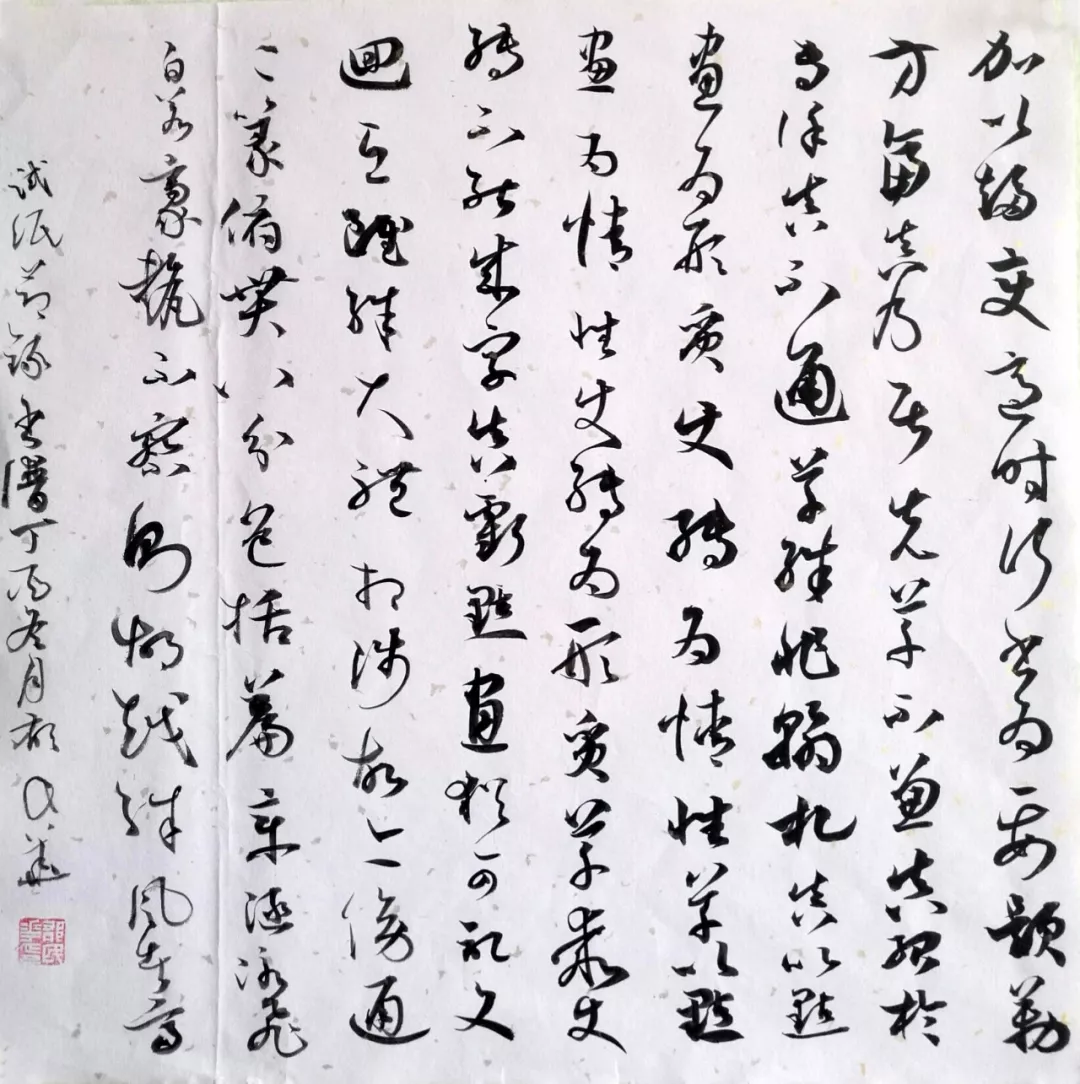 加以趨變適時行書為要題勒
方畐真乃居先草不兼真殆於
專謹真不通草殊非翰札真以點
畫為形質使轉為情性草以點
畫為情性使轉為形質草乖使
轉不能成字真虧點畫猶可記文
迴互雖殊大體相涉故亦傍通
二篆俯貫八分包括篇章涵泳飛
白若毫釐不察則胡越殊風者焉
試紙節錄書譜丁酉冬月